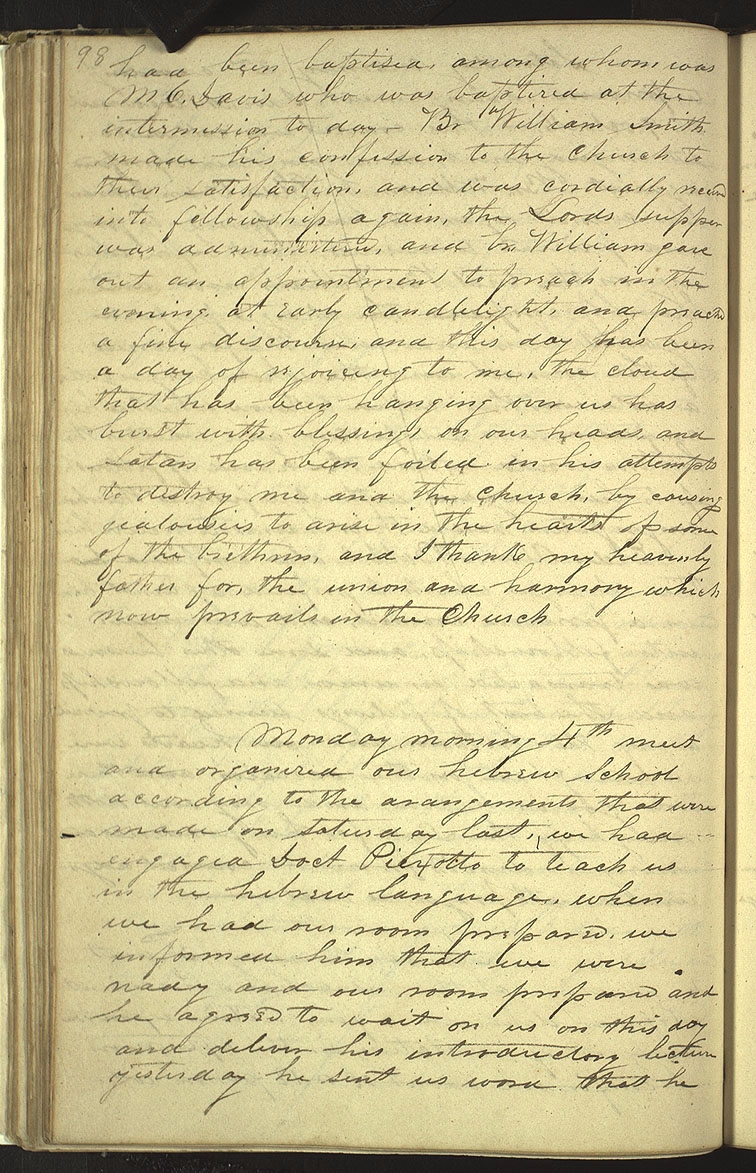 98
had been baptised, among whom was
M C. Davis who was baptized at the
intermission to day - Br William Smith
made his confession to the Church to
their satisfaction, and was cordially received
into fellowship again, the Lords supper
was administered, and br William gave
out an appointment to preach in the
evening, at early candlelight, and preached
a fine discourse, and this day has been
a day of rejoicing to me, the cloud
that has been hanging over us has
burst with blessings on our heads, and
Satan has been foiled in his attempts
to destroy me and the Church, by causing
jealousies to arise in the hearts of some
of the brethren, and I thank my heavenly
father for, the union and harmony which
now prevails in the Church
Monday morning 4th meet
and organized our hebrew School
according to the arangements that were
made on saturday last, we had
engaged Doct Piexotto to teach us
in the hebrew language, when
we had our room prepared. we
informed him that we were
ready and our room prepared and
he agreed to wait on us on this day
and deliver his introductory lecture
yesterday he sent us word that he